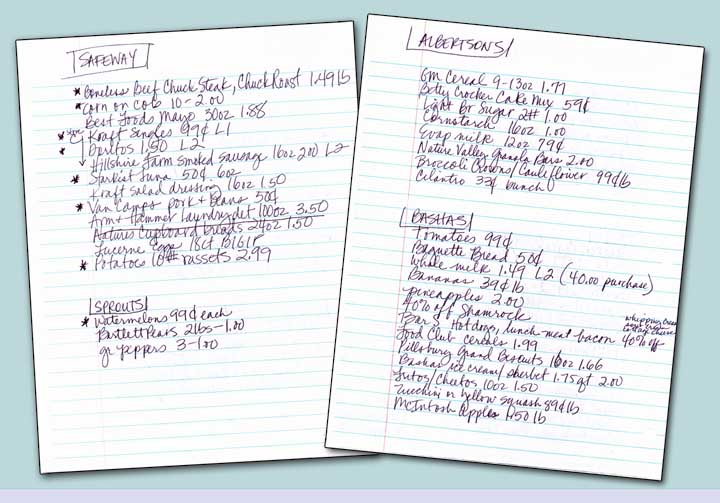 SAFEWAY
* Boneless Beef Chuck Steak, Chuck Roast 1.49 lb
* Corn on Cob 10-2.00
Best Foods Mayo 30oz 1.88
* Kraft Singles 99¢ L1
* Doritos 1.50 L2
Hillshire Farm Smoked Sausage 16oz 2.00 L2
* Starkist Tuna 50¢ 6oz
Kraft Salad dressing 16oz 1.50
* Van Camps pork + Beans 50¢
Arm + Hammer Laundry det 100oz 3.50
Natures Cupboard breads 24oz 1.50
Lucerne Eggs 18ct B1G1F
* Potatoes 10# russets 2.99
SPROUTS
* Watermelons 99¢ each
Bartlett Pears 2lbs-1.00
gr peppers 3-1.00
ALBERTSONS
GM Cereal 9-13oz 1.77
Betty Crocker Cake Mix 59¢
Light Br Sugar 2# 1.00
Cornstarch 16oz 1.00
Evap milk 12oz 79¢
Nature Valley Granola Bars 2.00
Broccoli Crowns/Cauliflower 99¢ lb
Cilantro 33¢ bunch
BASHAS
Tomatoes 99¢
Baguette Bread 50¢
Whole milk 1.49 L2 (40.00 purchase)
Bananas 39¢ lb
pineapples 2.00
40% off Shamrock whipping cream sour cream cottage cheese
Bar S Hotdogs, lunch meat bacon 40% off
Food Club Cereals 1.99
Pillsbury Grand Biscuits 16oz 1.66
Bashas ice cream/sherbet 1.75qt 2.00
Fritos/Cheetos 10oz 1.50
Zucchini or Yellow Squash 89¢ lb
McIntosh Apples 1.50 lb